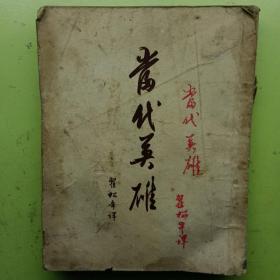 當代英雄
翟松年译
當代英雄
翟松年译